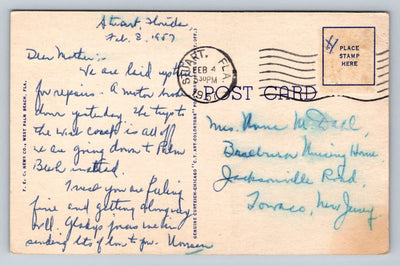 Stuart, Florida
Feb. 3, 1957
Dear Mother:-
We are laid up
for repairs. A motor broke
down yesterday. The trip to
the West coast is all off
we are going down to Palm
Bch instead.
Trust you are feeling
fine and getting along
well. Gladys joins me in
sending lots of love to you.
STUART, FLA.
FEB 4
530PM
PLACE
STAMP
HERE
POST CARD
Mrs. McDahl
Nursing Home
Jacksonville Road,
Towaco, New Jersey
WEST PALM BEACH, FLA.
GENUINE CURTEICH-CHICAGO "C.T. ART-COLORTONE" POST CARD